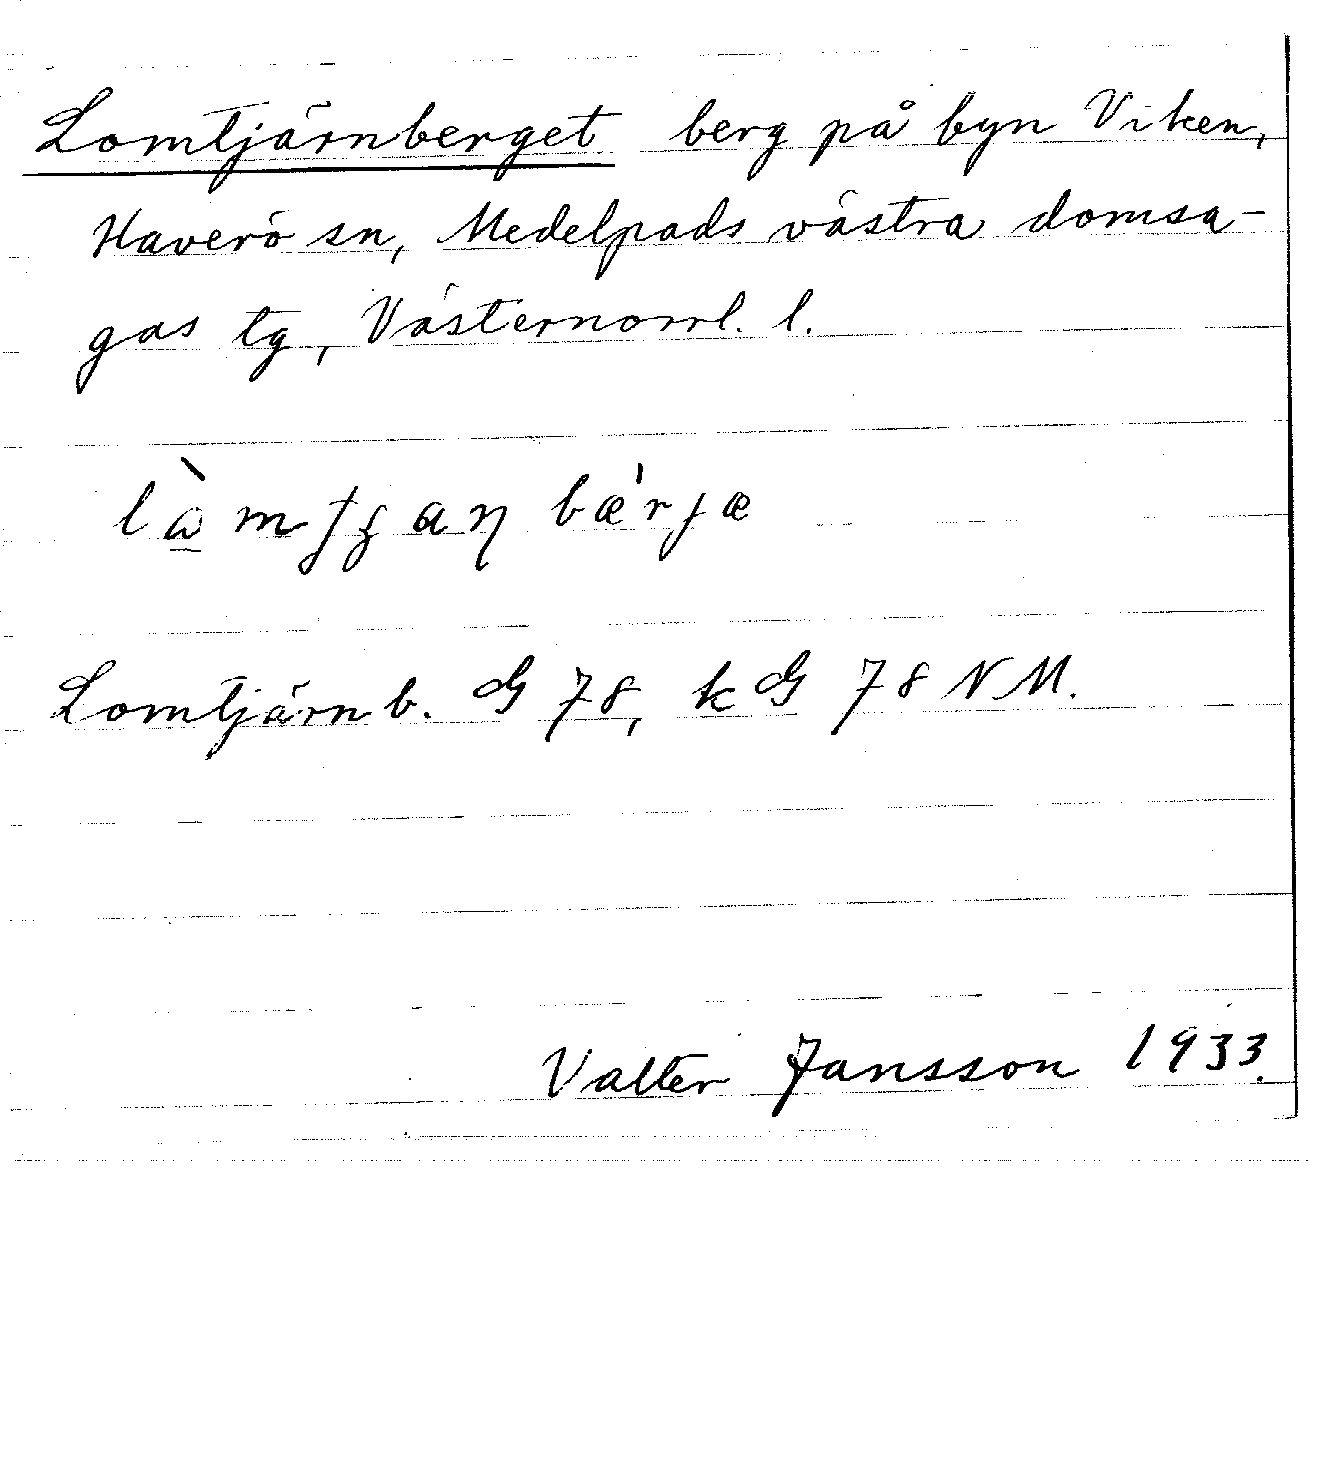 Lomtjärnberget berg på byn Viken,
Haverö sn, Medelpads västra domsa-
gas tg, Västernorrl. l.
Lomtjärnb. G 78, k G 78 NM.
Valter Jansson 1933.